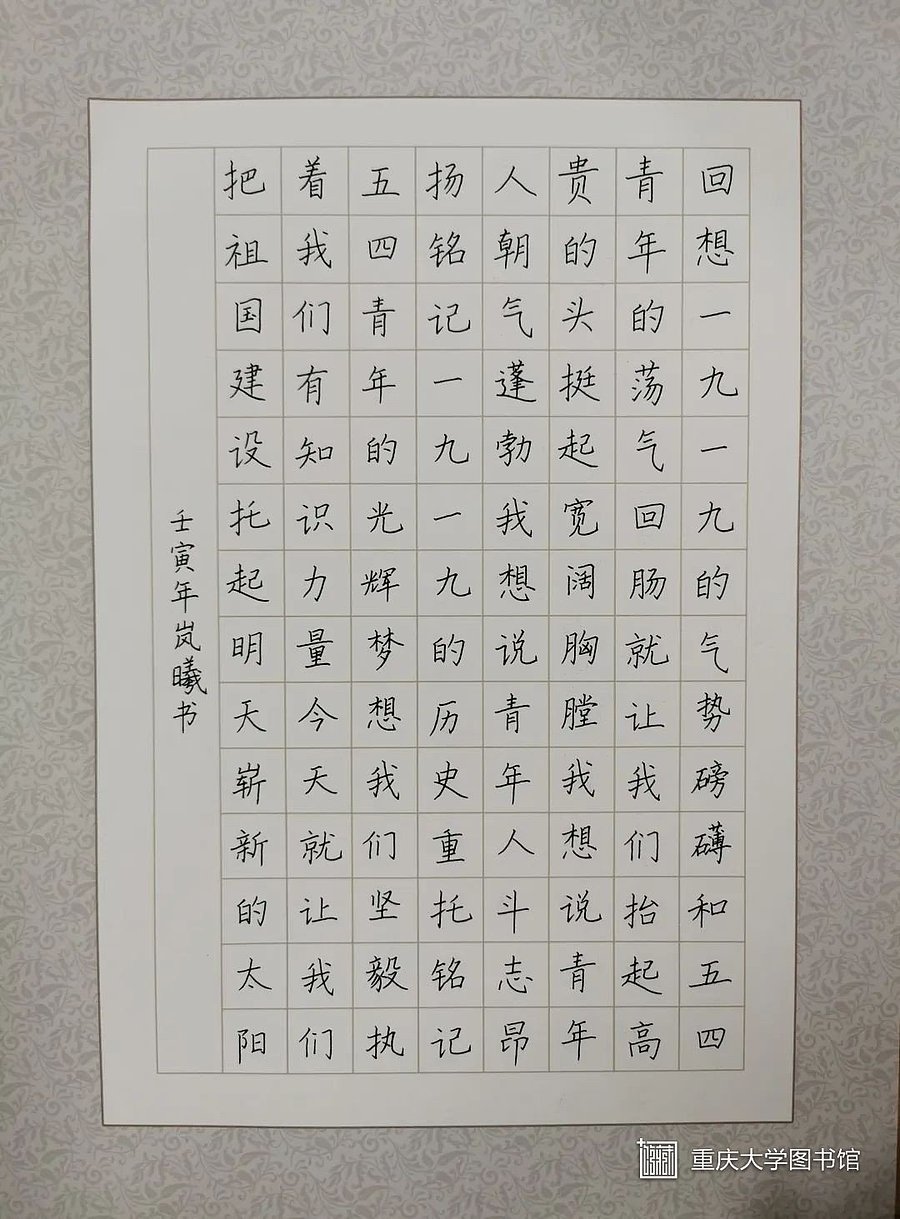 回想一九一九的气势磅礴和五四
青年的荡气回肠就让我们抬起高
贵的头挺起宽阔胸膛我想说青年
人朝气蓬勃我想说青年人斗志昂
扬铭记一九一九的历史重托铭记
五四青年的光辉梦想我们坚毅执
着我们有知识力量今天就让我们
把祖国建设托起明天崭新的太阳
壬寅年岚曦书
重庆大学图书馆